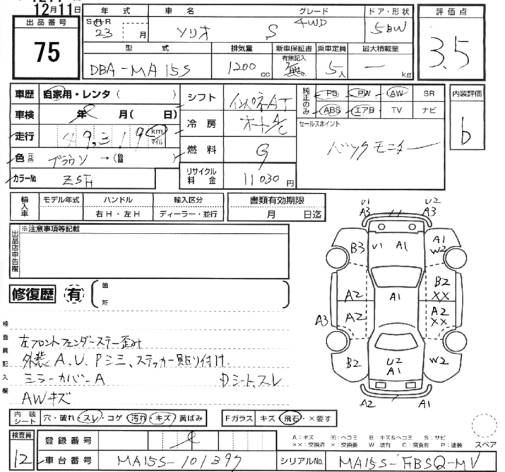 12月11日
出品番号 75
年式 S・H・R 23年 月
車名 ソリオ
グレード S 4WD
ドア・形状 5BW
評価点 3.5
型式 DBA-MA15S
排気量 1200 cc
新車保証書 有無記入 無
乗車定員 5人
最大積載量 — kg
車歴 自家用・レンタ( )
車検 年 月( 日)
走行 49,319 km マイル
色 ブラウン →(色替)
カラーNo ZSH
シフト インパネAT
冷房 オートAC
燃料 G
リサイクル料金 11030円
純正のみ PS PW AW SR
ABS エアB TV ナビ
セールスポイント
バックモニター
内装評価 b
輸入車 モデル年式 ハンドル 右H・左H 輸入区分 ディーラー・並行
書類有効期限 月 日迄
出品店申告欄 ※注意事項等記載
修復歴 有 箇所
検査員記入欄
左フロントフェンダーステー歪み
外装A.U.Pシミ、ステッカー貼り付け.
ミラーカバーA Dシート、スレ
AWキズ
U1 A3 U2 A3
B3 U1 A1 A1 W2
A2 A1 B2 XX
A3 A2 A2 XX
B2 U2 A1 W2
A2 A2
内装シート 穴・破れ・スレ・コゲ 汚れ・キズ・黄ばみ
Fガラス キズ・飛石・×要す
検査員 12
登録番号
車台番号 MA15S-101397
A:キズ U:ヘコミ B:キズ&ヘコミ S:サビ
XX:交換済 X:要交換 W:波打 C:腐食 P:塗装
スペア
シリアルNo. MA15S-FBSQ-MV